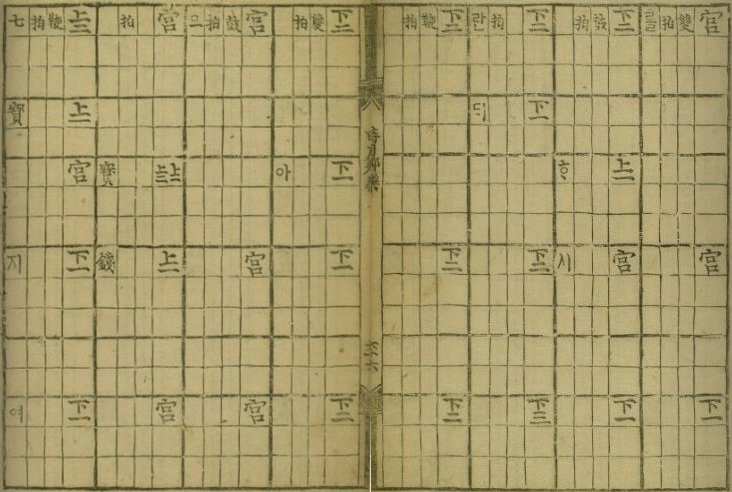 宮宮下一
雙
拍
를
下一上一宮下一
鼓
拍
ᄒᆞ시
下一下一下二下三
拍
란ᄃᆡ
下二下二下二
鞭
拍
時用鄕樂
下一下一下一下二
雙
拍
아
宮宮宮
鼓
拍
으
宮上一上二上一宮
拍
寶錢
上二上一宮下一下一
鞭
拍
七寶지여